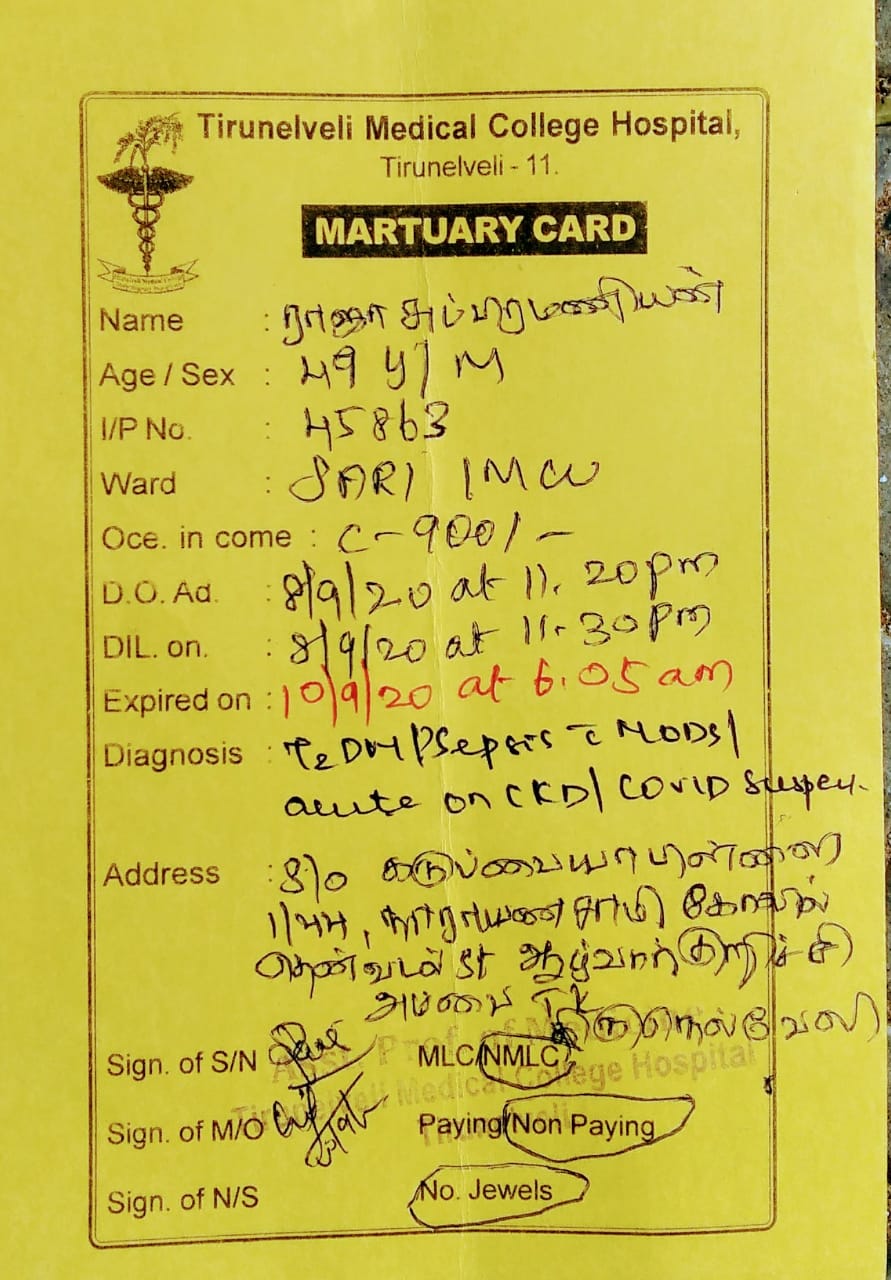 Tirunelveli Medical College Hospital,
Tirunelveli - 11.
MARTUARY CARD
Name : ராஜா சுப்பிரமணியன்
Age / Sex : 49 y / M
I/P No. : 45863
Ward : SARI IMCU
Oce. in come : C - 900/-
D.O. Ad. : 8/9/20 at 11.20pm
DIL. on. : 8/9/20 at 11.30pm
Expired on : 10/9/20 at 6.05 am
Diagnosis : T2DM/Sepsis c MODS/
acute on CKD/ COVID Suspect.
Address : S/o
1/44, நாராயணசாமி கோவில்
தென்வடல் St ஆழ்வார்குறிச்சி
அம்பை Tk
திருநெல்வேலி
Sign. of S/N MLC/NMLC
Tirunelveli Medical College Hospital
Sign. of M/O Paying/Non Paying
Tirunelveli
Sign. of N/S No. Jewels